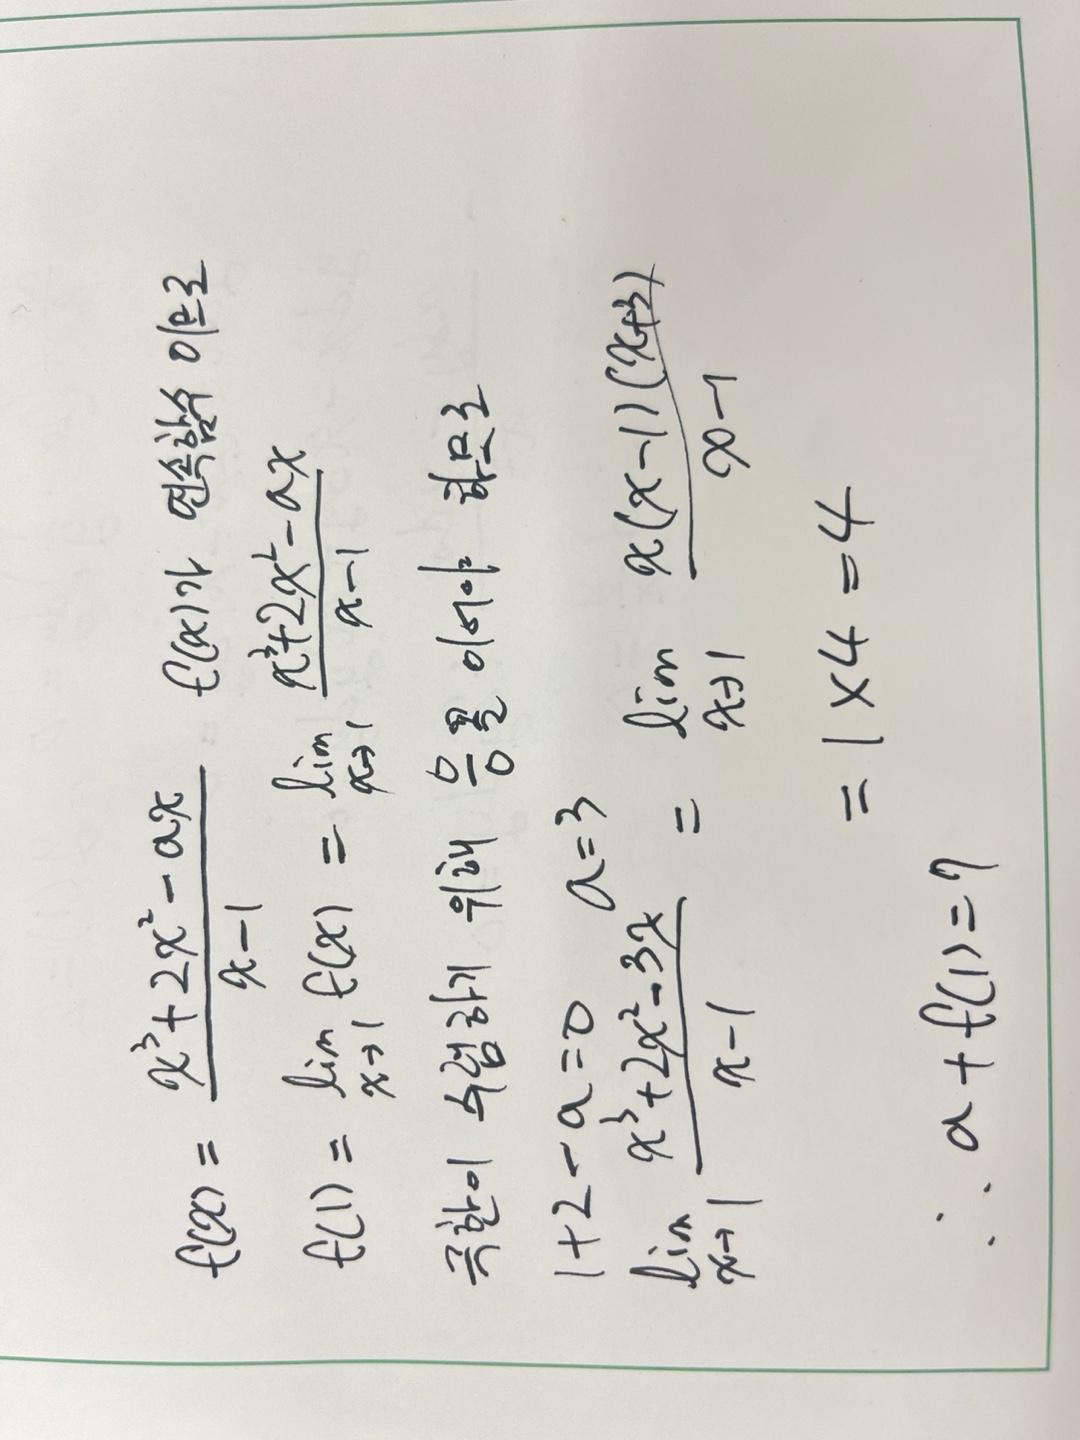 f(x) = (x³+2x²-ax)/(x-1) f(x)가 연속함수 이므로
f(1) = lim_{x→1} f(x) = lim_{x→1} (x³+2x²-ax)/(x-1)
극한이 수렴하기 위해 응꼴 이어야 하므로
1+2-a=0 a=3
lim_{x→1} (x³+2x²-3x)/(x-1) = lim_{x→1} x(x-1)(x+3)/(x-1)
= 1×4=4
∴ a+f(1)=7